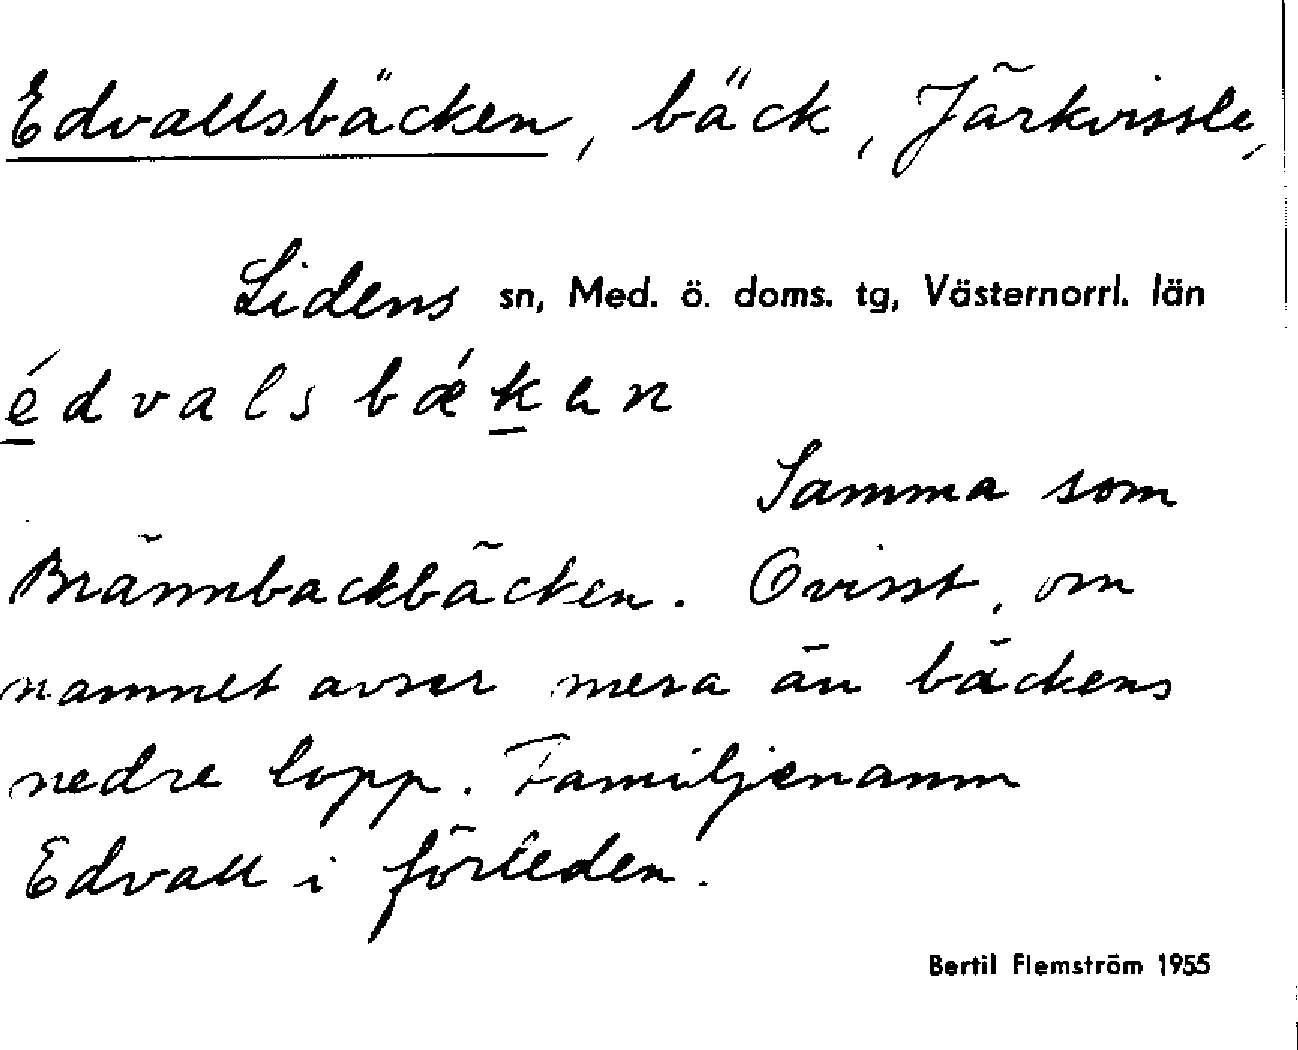 Edvallsbäcken, bäck, Järkvissle,
Lidens sn, Med. ö. doms. tg, Västernorrl. län
édvalsbǽkan
Samma som
Brännbackbäcken. Ovisst, om
namnet avser mera än bäckens
nedre lopp. Familjenamn
Edvall i förleden.
Bertil Flemström 1955